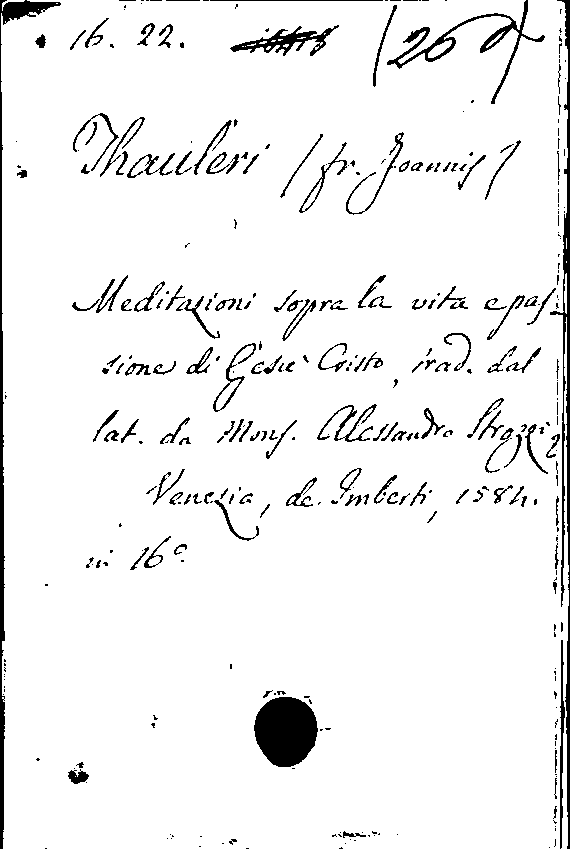 16. 22. (26
Thauleri (fr. Joannis)
Meditazioni sopra la vita e pas-
sione di Gesù Cristo, trad. dal
lat. da Mons. Alessandro Strozzi,
Venezia, de Imberti, 1584.
in 16°